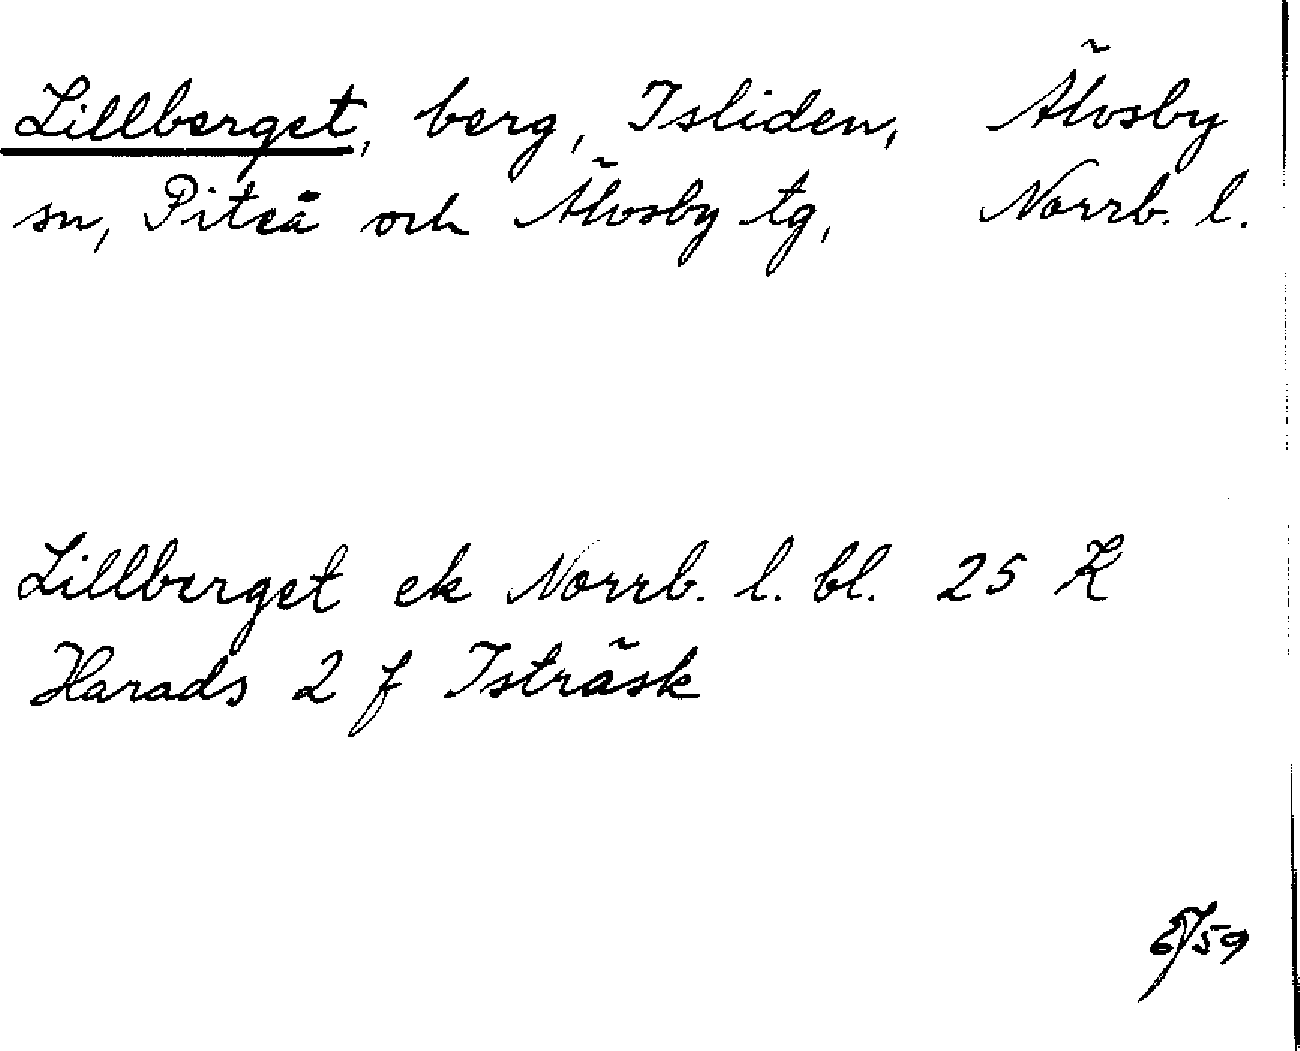 Lillberget, berg, Isliden, Älvsby
sn, Piteå och Älvsby tg, Norrb. l.
Lillberget ek Norrb. l. bl. 25 K
Harads 2 f Isträsk